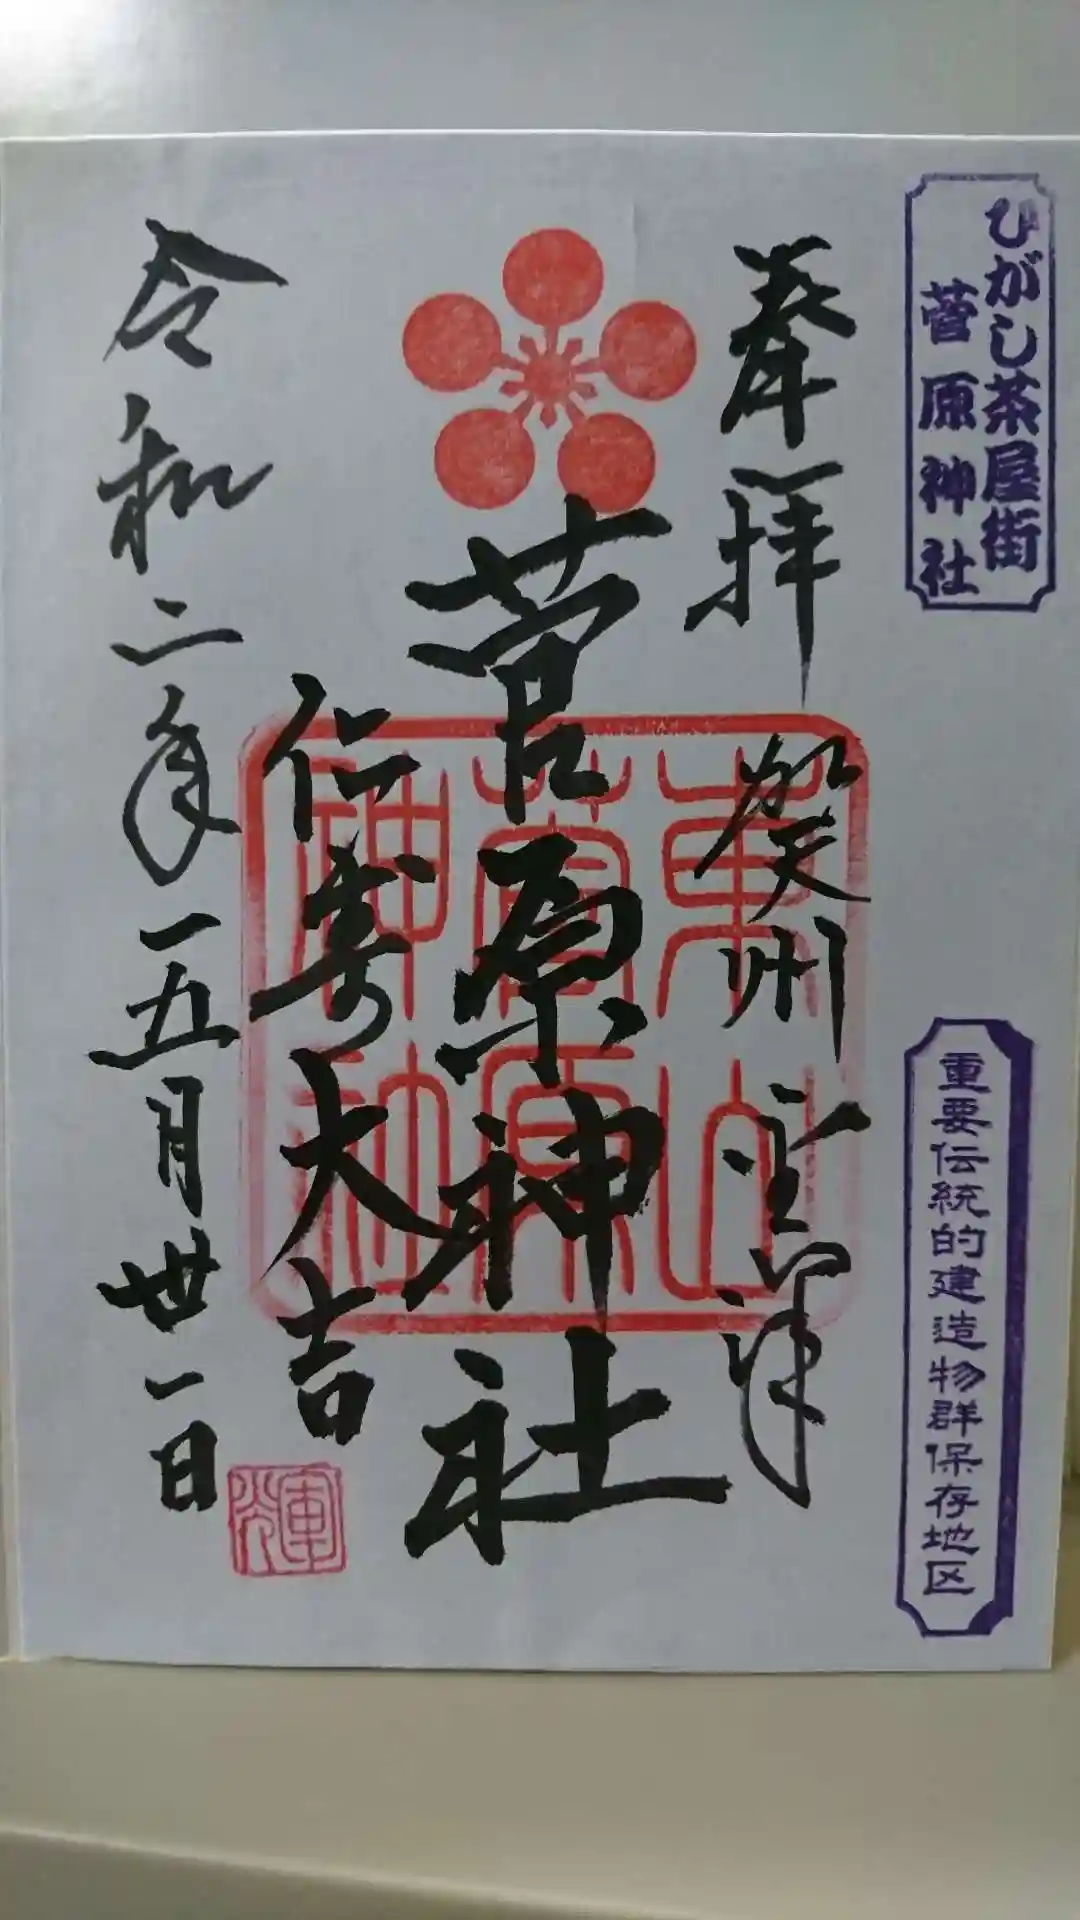 ひがし茶屋街
菅原神社
重要伝統的建造物群保存地区
奉拝
加賀州金澤
菅原神社
東山
菅原
神社
仁寿大吉
令和二年五月丗一日
輝